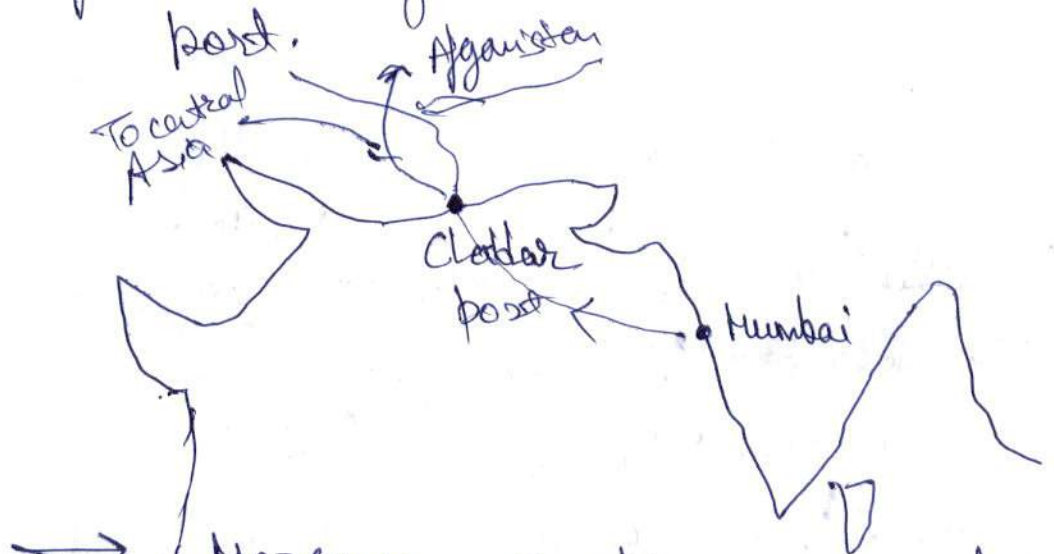 port.
Afganistan
To central
Asia
Chabhar
port
Mumbai